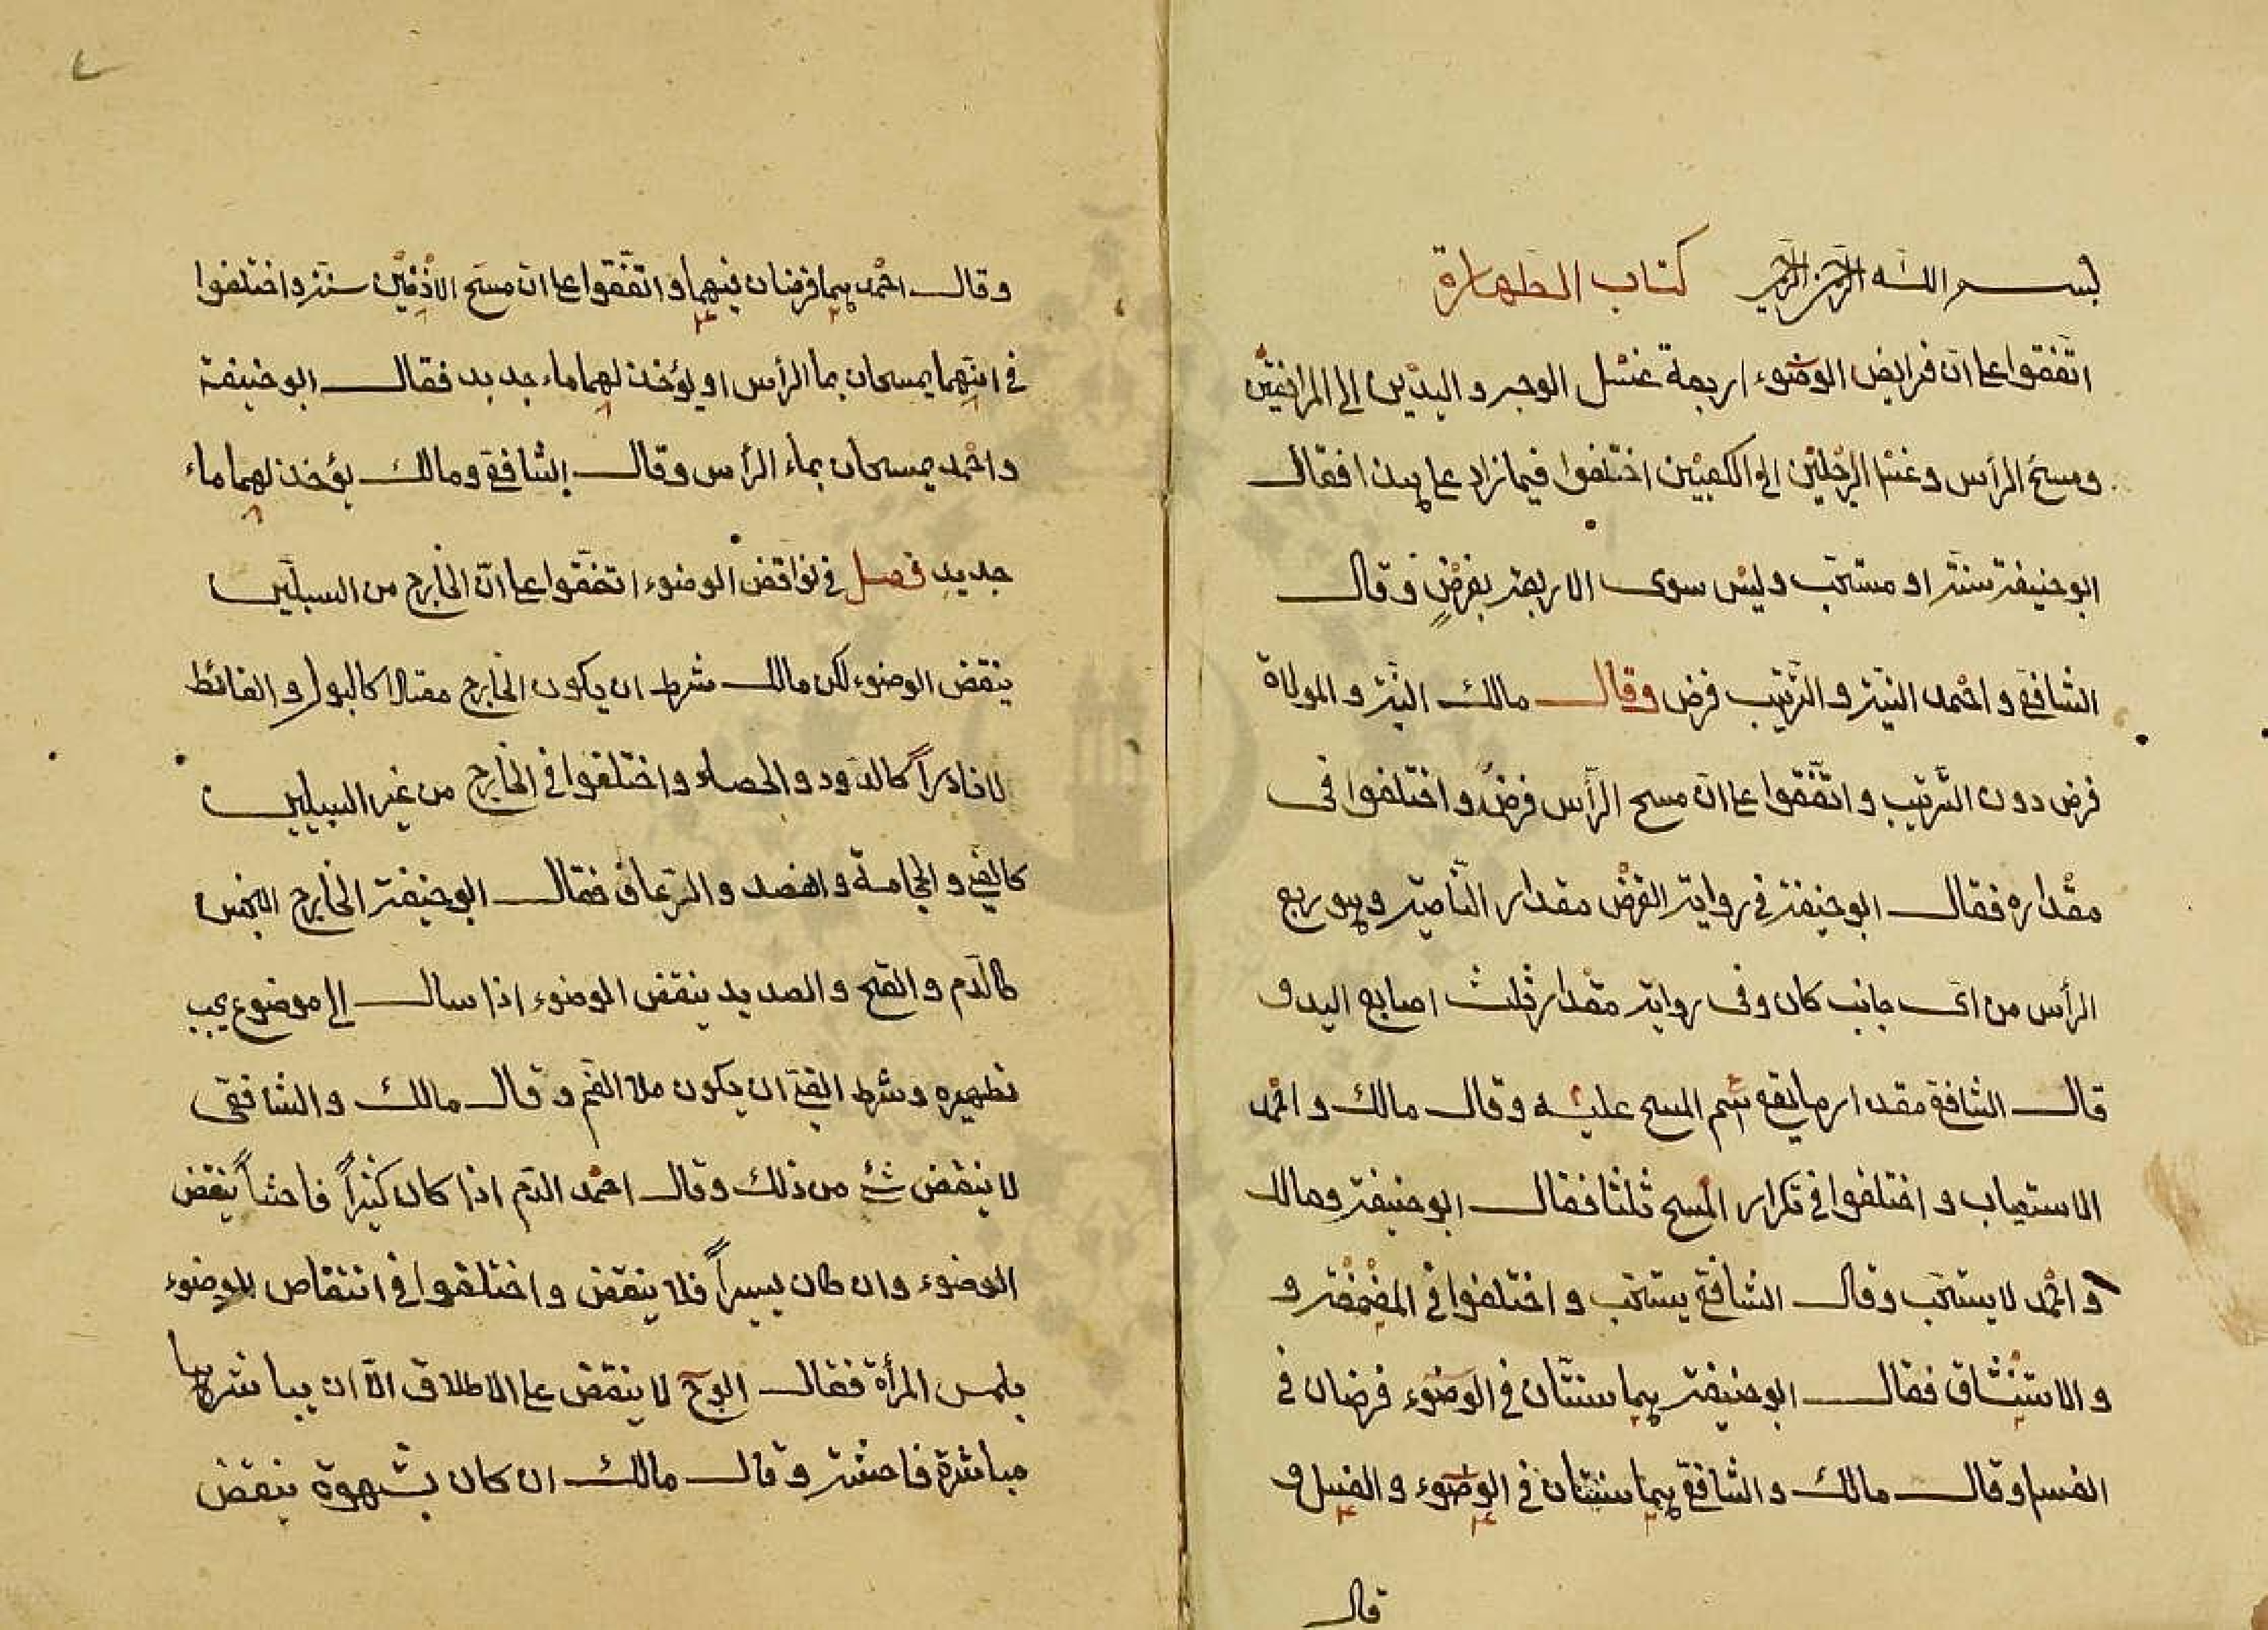 بسم الله الرحمن الرحيم كتاب الطهارة
اتّفقوا على انّ فرايض الوضوء اربعة غسل الوجه واليدين الى المرافقين
ومسح الرأس وغسل الرجلين الى الكعبين اختلفوا فيما زاد على هذا فقال
ابو حنيفة سنة او مستحب وليس سوى الاربعة بفرضٍ وقال
الشافعي واحمد النية والترتيب فرض وقال مالك النية والمولاة
فرض دون الترتيب واتّفقوا على انّ مسح الرأس فرضٌ واختلفوا فى
مقداره فقال ابو حنيفة في رواية الفرض مقدار النّاصية وهو ربع
الرأس من اى جانب كان وفى رواية مقدار ثلث اصابع اليد و
قال الشافعي مقدار ما يقع اسم المسح عليه وقال مالك واحمد
الاستيعاب واختلفوا في تكرار المسح ثلثا فقال ابو حنيفة ومالك
واحمد لا يستحب وقال الشافعي يستحب واختلفوا في المضمضة و
والاستنشاق فقال ابو حنيفة هما سنتان في الوضوء فرضان في
الغسل وقال مالك والشافعي هما سنتان في الوضوء والغسل و
قال
٢
وقال احمد هما فرضان فيهما واتّفقوا على انّ مسح الاذنين سنة واختلفوا
في انّهما يمسحان بما الرأس او يؤخذ لهما ماء جديد فقال ابو حنيفة
واحمد يمسحان بماء الرأس وقال الشافعي ومالك يؤخذ لهما ماء
جديد فصل في نواقض الوضوء اتفقوا على انّ الخارج من السبيلين
ينقض الوضوء لكن مالك شرط ان يكون الخارج معتادا كالبول والغائط
لا نادراً كالدّود والحصاء واختلفوا في الخارج من غير السبيلين
كالقئ والحجامة والفصد والرّعاف فقال ابو حنيفة الخارج النجس
كالدّم والقيح والصديد ينقض الوضوء اذا سال الى موضوع يجب
تطهيره وشرط القئ ان يكون ملا الفم وقال مالك والشافعى
لا ينقض شئ من ذلك وقال احمد الدّم اذا كان كثيراً فاحشاً ينقض
الوضوء وان كان يسيراً فلا ينقض واختلفوا في انتقاص الوضوء
بلمس المرأة فقال ابوح لا ينقض على الاطلاق الّا ان يباشرها
مباشرة فاحشة وقال مالك ان كان بشهوة ينقض